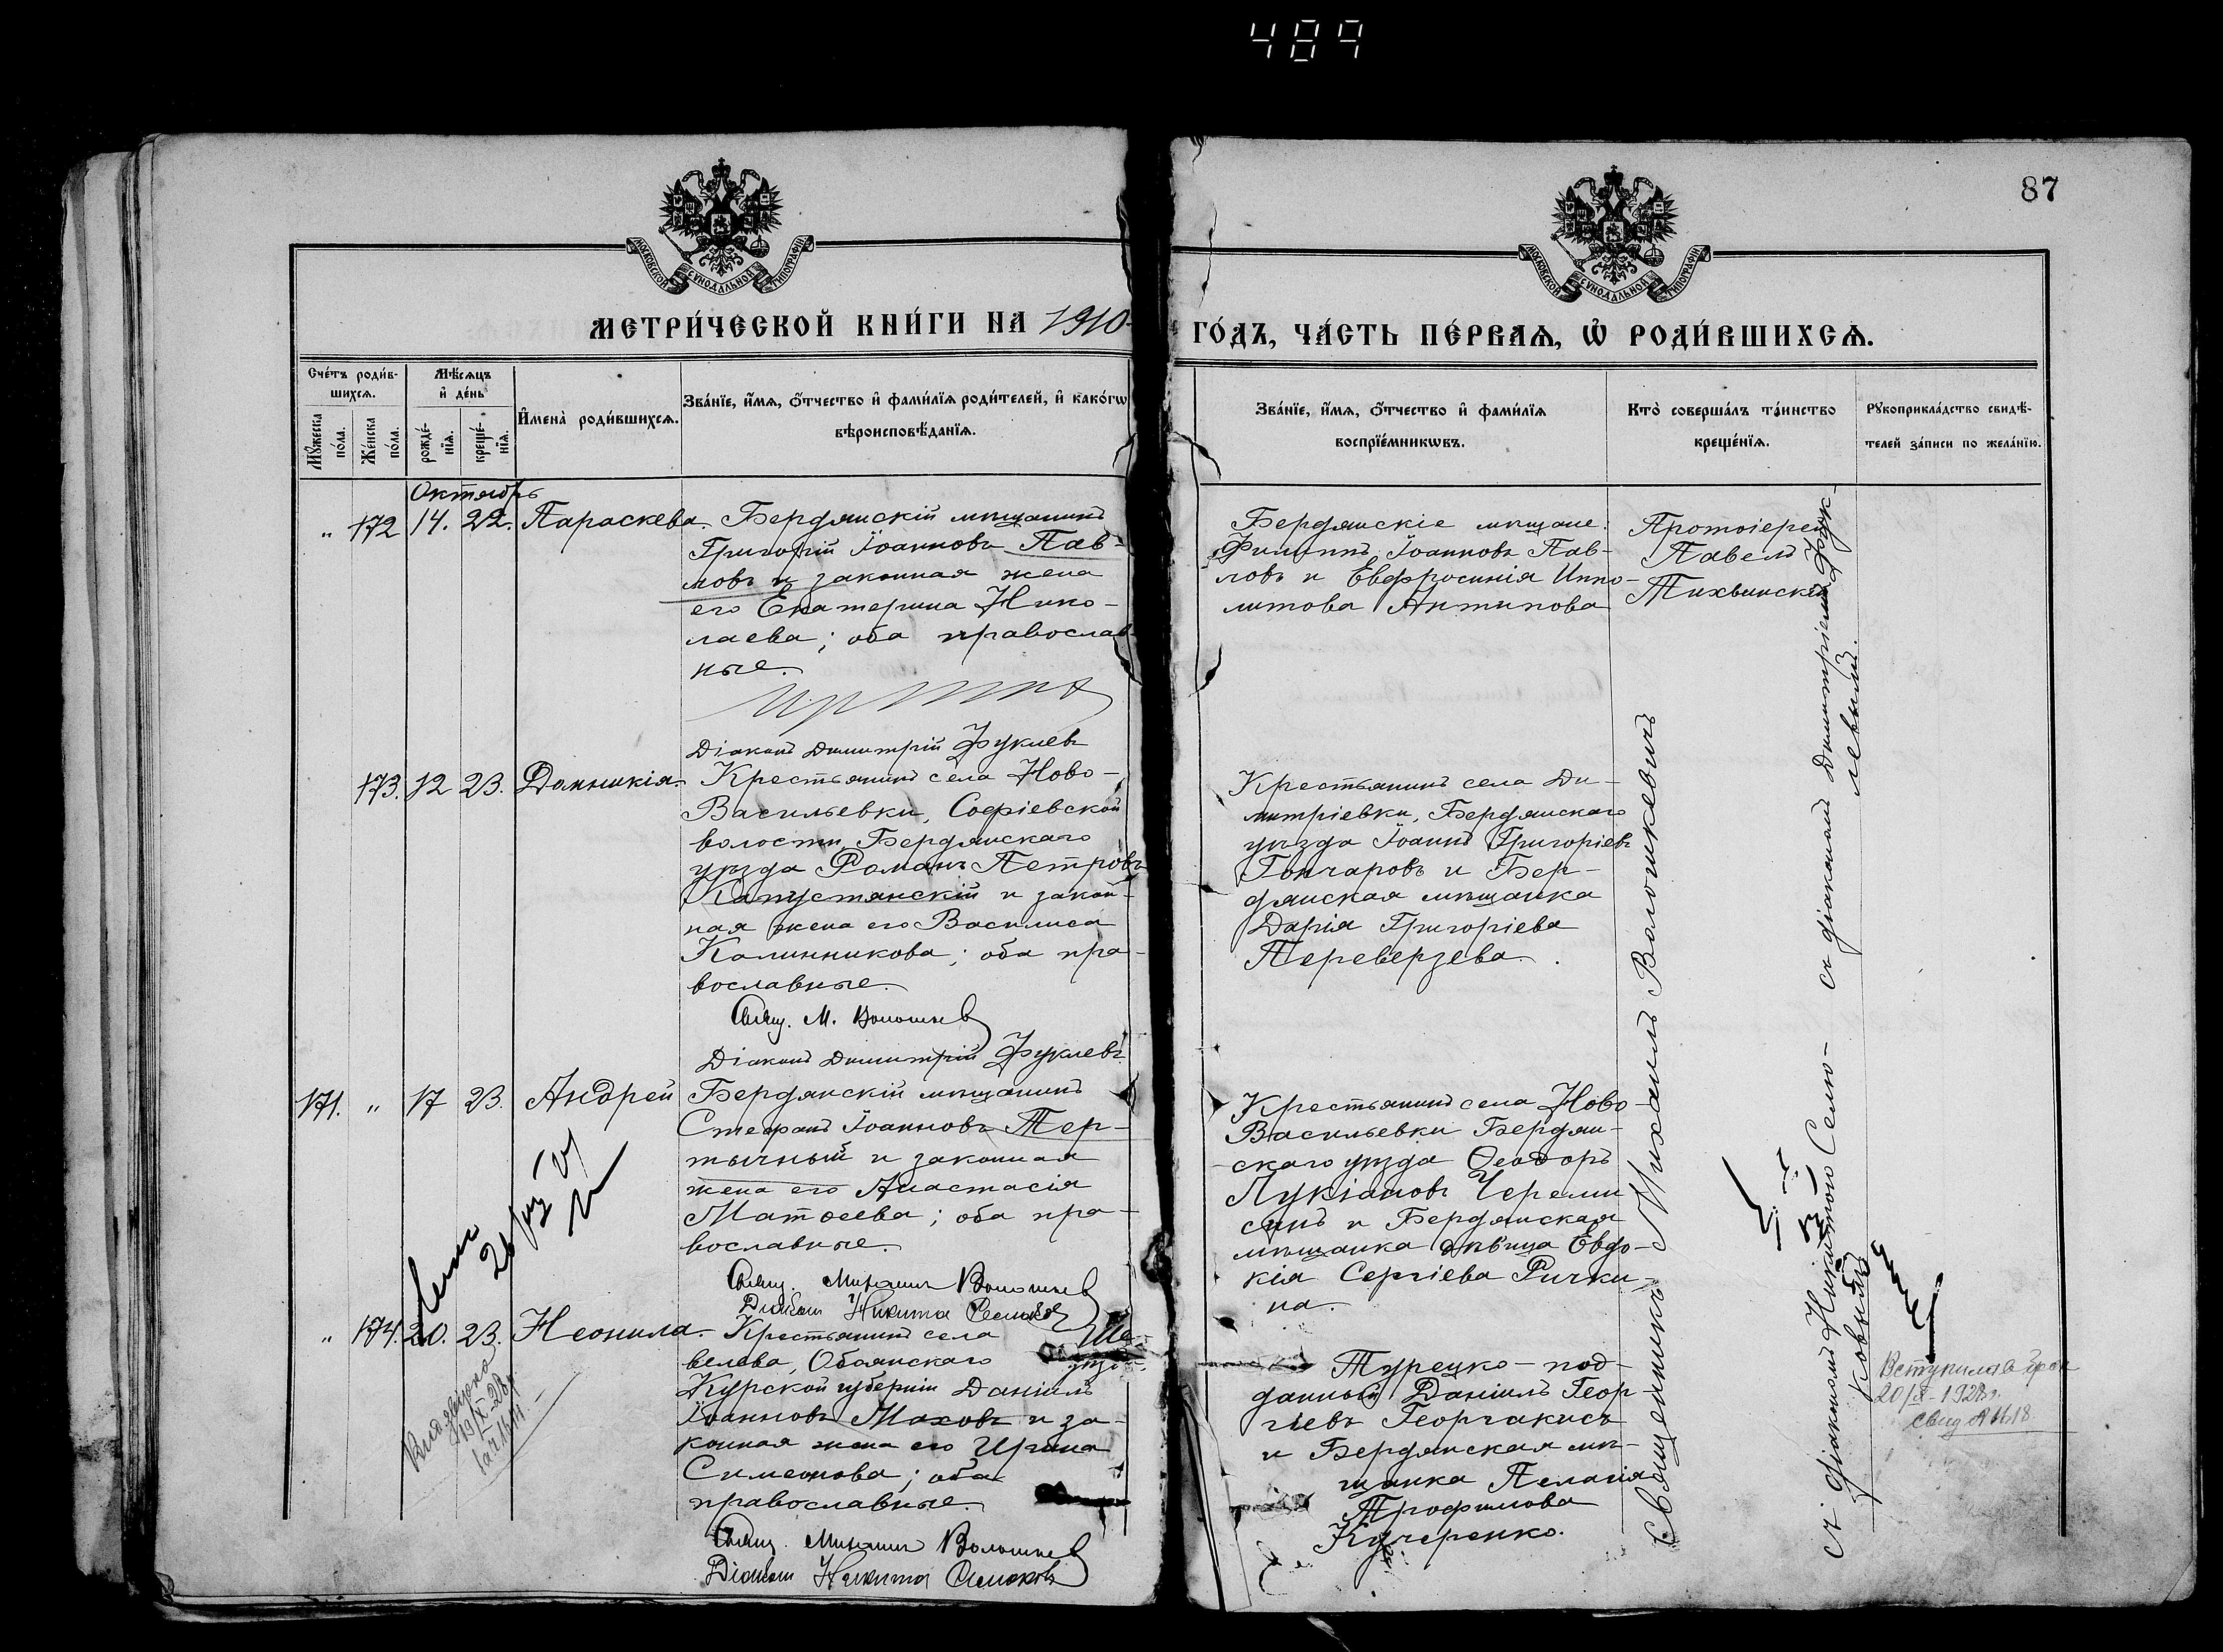 489
87
МОСКОВСКОЙ СѴНОДАЛЬНОЙ ТИПОГРАФІИ
МОСКОВСКОЙ СѴНОДАЛЬНОЙ ТИПОГРАФІИ
МЕТРИ́ЧЕСКОЙ КНИ́ГИ НА 1910
ГО́ДЪ, ЧА́СТЬ ПЕ́РВАѦ, Ѽ РОДИ́ВШИХСѦ.
Сче́тъ роди́в-
шихсѧ.
Мꙋ́жеска
по́ла.
Же́нска
по́ла.
Мѣ́сѧцъ
и҆ де́нь
рожде́-
нїѧ.
креще́-
нїѧ.
И҆мена̀ роди́вшихсѧ.
Зва́нїе, и҆́мѧ, ѻ҆́тчество и҆ фами́лїѧ роди́телей, и҆ како́гѡ
вѣроисповѣ́данїѧ.
Зва́нїе, и҆́мѧ, ѻ҆́тчество и҆ фами́лїѧ
воспрїе́мникѡвъ.
Кто̀ соверша́лъ та́инство
креще́нїѧ.
Рꙋкоприкла́дство свидѣ́-
телей за́писи по жела́нїю.
Октябрь
" 172 14. 22. Параскева.
Бердянскій мѣщанинъ
Григорій Іоанновъ Пав-
ловъ и законная жена
его Екатерина Нико-
лаева; оба православ-
ные.
Діаконъ Димитрій Фуклевъ
Бердянскіе мѣщане:
Филиппъ Іоанновъ Пав-
ловъ и Евфросинія Иппо-
литова Антипова
Протоіерей
Павелъ
Тихвинскій
173. 12 23. Домникія.
Крестьянинъ села Ново-
Васильевки, Софіевской
волости, Бердянскаго
уѣзда Романъ Петровъ
Капустянскій и закон-
ная жена его Василиса
Калинникова; оба пра-
вославные.
Свящ. М. Волошкев
Діаконъ Димитрій Фуклевъ
Крестьянинъ села Ди-
митріевки, Бердянскаго
уѣзда Іоаннъ Григоріевъ
Гончаровъ и Бер-
дянская мѣщанка
Дарія Григоріева
Переверзева.
171. " 17 23. Андрей
Бердянскій мѣщанинъ
Стефанъ Іоанновъ Тер-
тычный и законная
жена его Анастасія
Матѳеева; оба пра-
вославные.
Свящ. Михаилъ Волошкев
Діаконъ Никита Селюков
Крестьянинъ села Ново-
Васильевки Бердян-
скаго уѣзда Ѳеодоръ
Лукіановъ Череми
синъ и Бердянская
мѣщанка дѣвица Евдо-
кія Сергіева Рички-
на.
" 174. 20. 23. Неонила.
Крестьянинъ села Ше-
велева, Обоянскаго уѣзд.
Курской губерніи Даніилъ
Іоанновъ Маховъ и за-
конная жена его Ирина
Симеонова; оба
православные.
Свящ. Михаилъ Волошкев
Діаконъ Никита Селюковъ
Турецко-под-
данный Даніилъ Геор
гіевъ Георгакисъ
и Бердянская мѣ-
щанка Пелагія
Трофимова
Кучеренко.
Священникъ Михаилъ Волошкевичъ
съ діакономъ Димитріемъ Фук-
левымъ.
съ діакономъ Никитою Селю-
ковымъ
20/X-1928г.